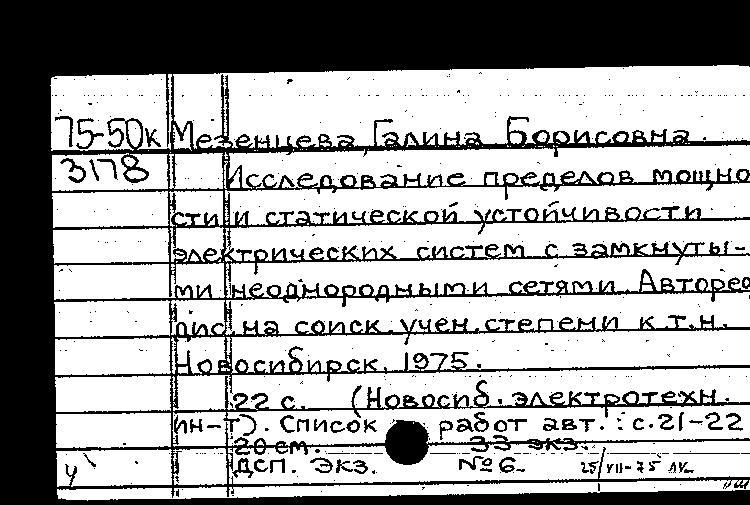 75-50к Мезенцева Галина Борисовна.
3178 Исследование пределов мощно
сти и статической устойчивости
электрических систем с замкнуты-
ми неоднородными сетями. Авторе
дис. на соиск. учен. степени к.т.н.
Новосибирск, 1975.
22 с. (Новосиб. электротехн.
ин-т). Список работ авт.: с.21-22
20 см. 33 экз.
ДСП. Экз. №6 25/VII-75